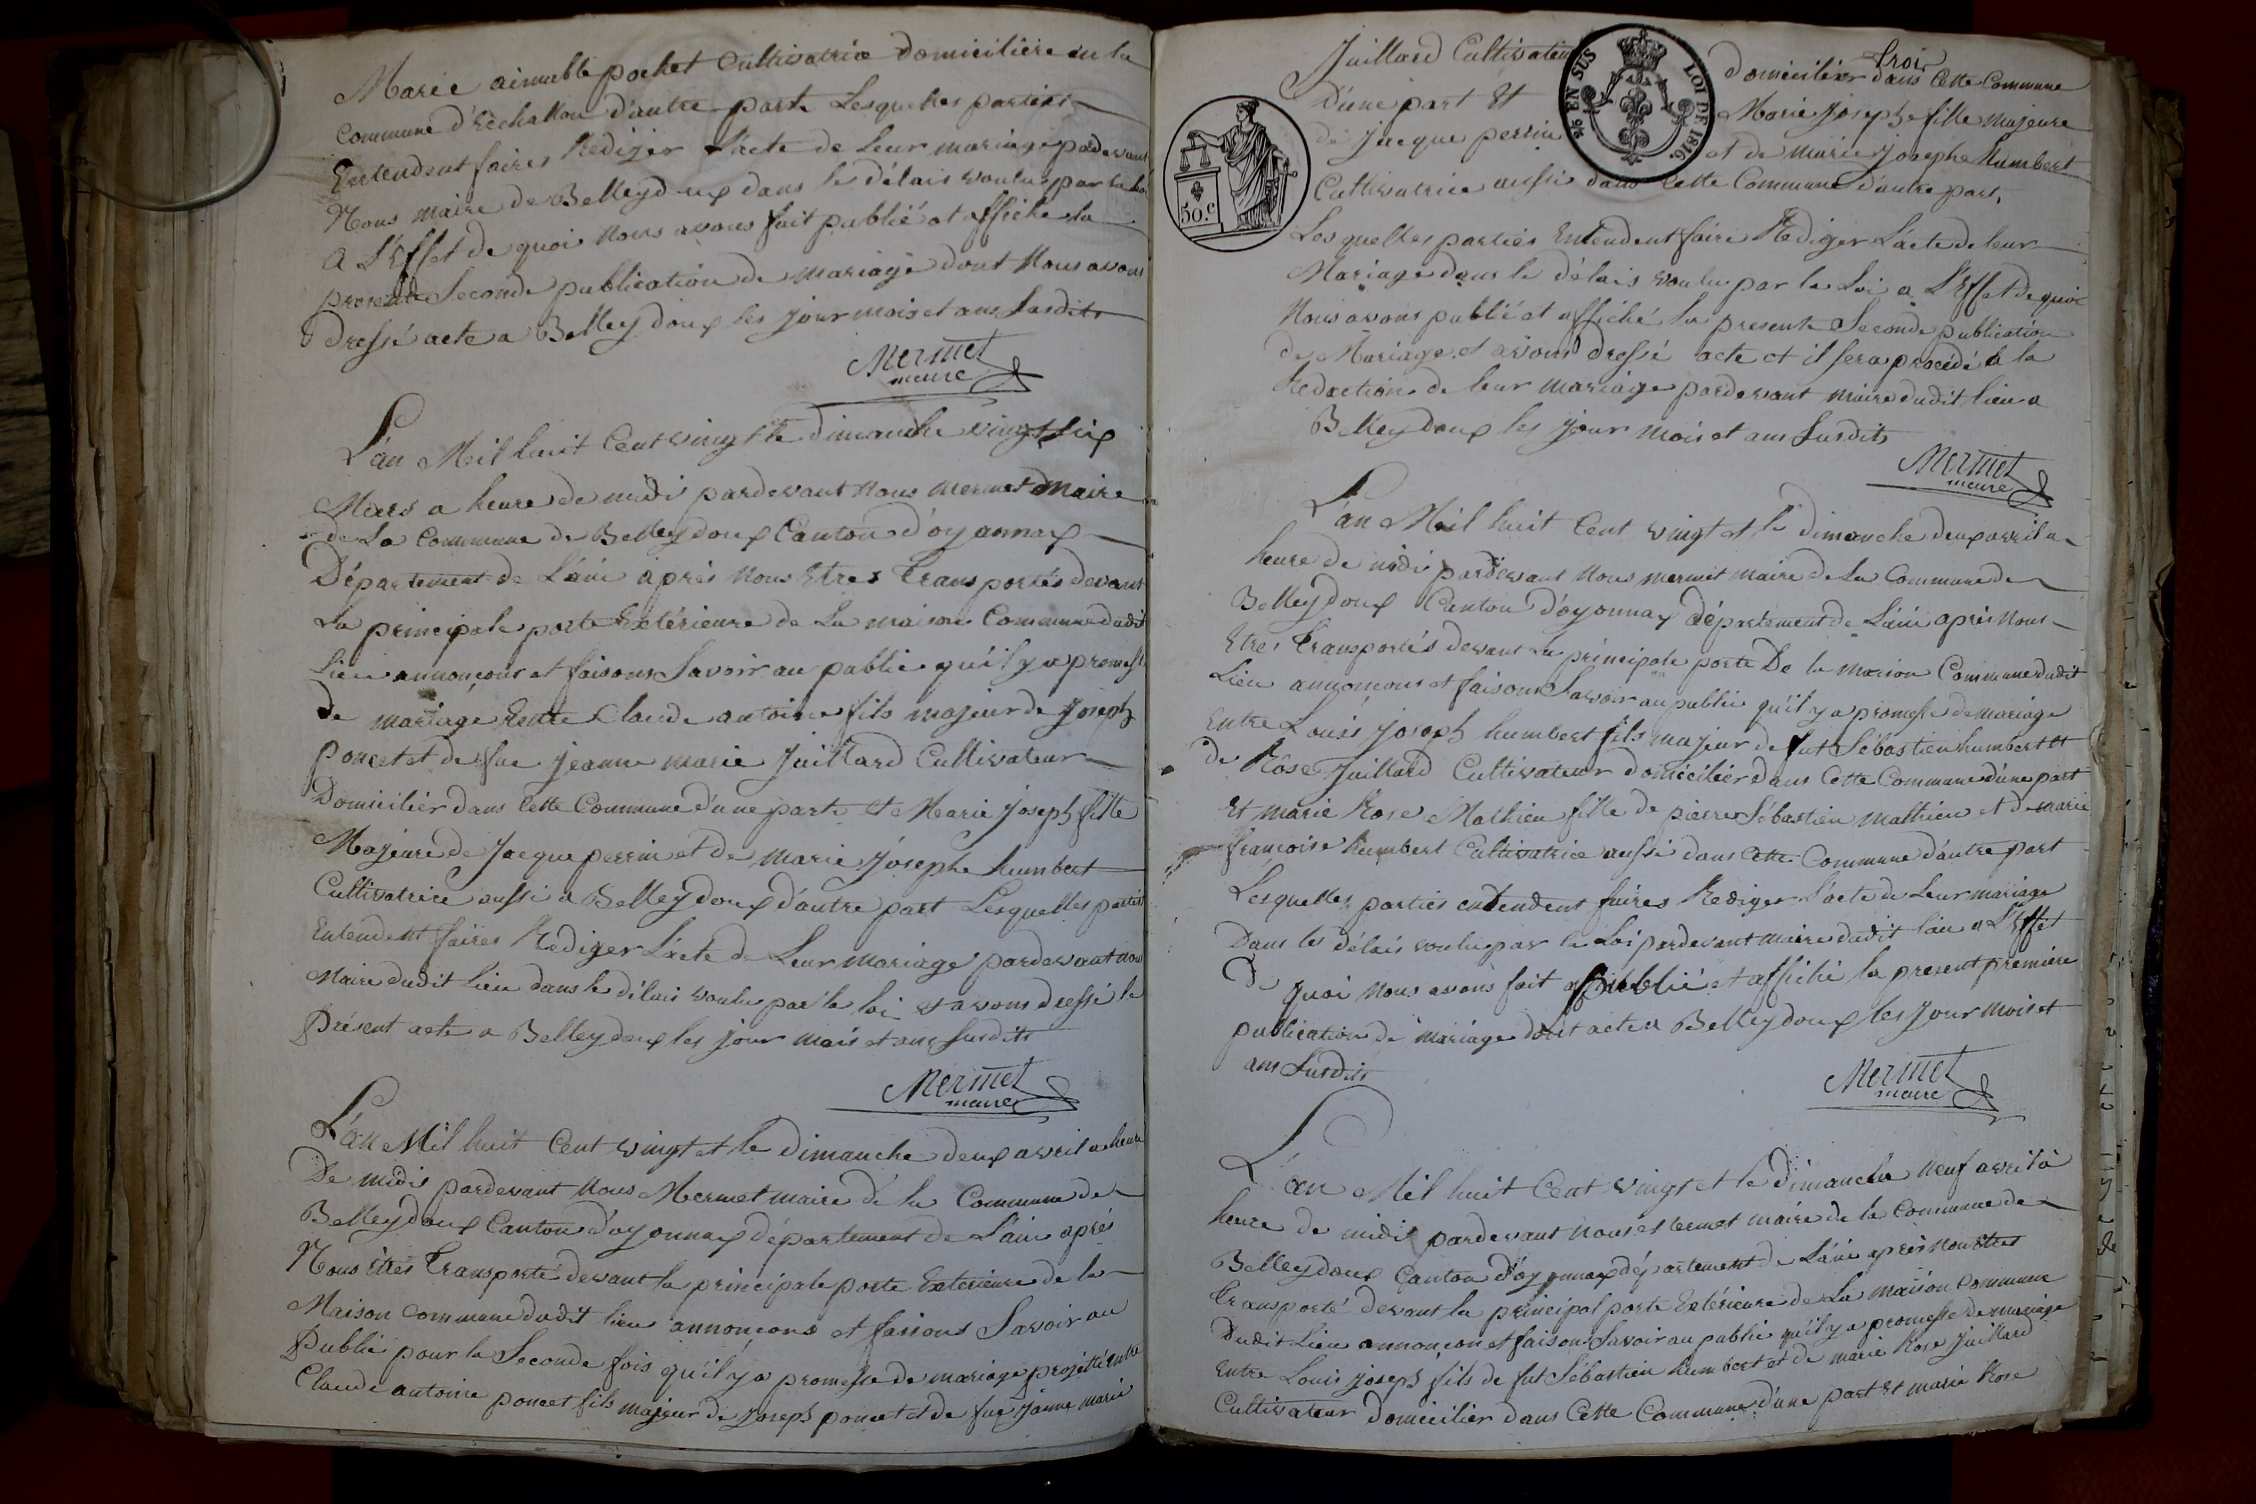 Marie aimable pochet Cultivatrice domicilière en la
Commune d'Echallon d'autre parte Lesquelles parties
Entendent faires Rediger L'acte de Leur mariage pardevant
Nous maire de Belleydoux dans le délais voulu par la Loi
A L'Effet de quoi Nous avons fait publié et affiché la
presente Seconde publication de mariage dont Nous avons
Dressé acte a Belleydoux les jour mois et ans Susdits
Mermet
maire
L'an Mil huit Cent vingt le dimanche vingt six
Mars a heure de midi pardevant Nous Mermet Maire
de La Commune de Belleydoux Canton d'oyonnax
Département de L'ain après Nous Etres Transportés devant
La principale porte Extérieure de La maison Commune dudit
Lieu annonçons et faisons Savoir au public qu'il y a promesse
de mariage Entre Claude antoine fils majeur de Joseph
Poncet et de fue jeanne marie Juillard Cultivateur
Domicilier dans Cette Commune d'une parte et Marie Joseph fille
Majeure de Jacque perrin et de Marie Josephe humbert
Cultivatrice aussi a Belleydoux d'autre part Lesquelles parties
Entendent faires Rediger L'acte de Leur mariage pardevant Nous
Maire dudit Lieu dans le délais voulu par la loi et avons dressé le
présent acte a Belleydoux les jour mois et ans Susdits
Mermet
maire
L'an Mil huit Cent vingt et le dimanche deux avril a heure
De midi pardevant Nous Mermet maire de la Commune de
Belleydoux Canton d'oyonnax département de L'ain aprés
Nous êtres Transporté devant la principale porte Extérieure de la
Maison commune dudit lieu annonçons et faisons Savoir au
Public pour la Seconde fois qu'il y a promesse de mariage projetté entre
Claude antoine poncet fils majeur de Joseph poncet et de fue Janne marie
trois
Juillard Cultivateur domicilier dans Cette Commune
D'une part Et Marie Joseph fille Majeure
de Jacque perrin et de marie Josephe Humbert
Cultivatrice aussi dans Cette Commune d'autre part,
Lesquelles parties Entendent faire Rediger L'acte de leur
Mariage dans le délais voulu par la Loi a L'Effet de quoi
Nous avons publié et affiché la presente Seconde publication
de Mariage et avons dressé acte et il sera procédé a la
Redaction de leur mariage pardevant maire dudit lieu a
Belleydoux les jour mois et ans Susdits
Mermet
maire
50.c
25 EN SUS LOI DE 1816
L'an Mil huit Cent vingt et le dimanche deux avril a
heure de midi pardevant Nous mermet maire de La Commune de
Belleydoux Canton d'oyonnax département de L'ain après Nous
Etres Transportés devant La principale porte De la maison Commune dudit
Lieu annonçons et faisons Savoir au public qu'il y a promesse de mariage
Entre Louis joseph humbert fils majeur de fut Sébastien humbert et
de Rose Juillard Cultivateur domicilier dans Cette Commune d'une part
Et marie Rose Mathieu fille de pierre Sébastien mathieu et de marie
françoise humbert Cultivatrice aussi dans Cette Commune d'autre part
Lesquelles parties entendent faires Rediger L'acte de Leur mariage
Dans les délais voulu par la Loi pardevant maire dudit lieu a L'Effet
De quoi Nous avons fait publié et affiché la present première
publication de mariage dont acte a Belleydoux les Jour mois et
ans Susdits
Mermet
maire
L'an Mil huit Cent vingt et le dimanche neuf avril à
heure de midi pardevant Nous Mermet maire de la Commune de
Belleydoux Canton d'oyonnax département de L'ain après Nous êtres
Transporté devant la principal porte Extérieure de La maison commune
Dudit Lieu annonçon et faison Savoir au public qu'il y a promesse de mariage
Entre Louis joseph fils de fut Sébastien humbert et de marie Rose Juillard
Cultivateur domicilier dans Cette Commune d'une part Et marie Rose